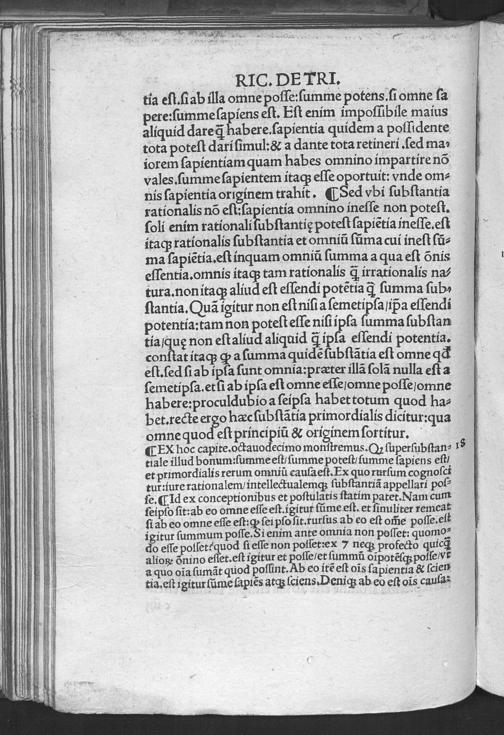 RIC. DE TRI.
tia est. si ab illa omne posse: summe potens. si omne sa
pere: summe sapiens est. Est enim impossibile maius
aliquid dare q̃ habere. sapientia quidem a possidente
tota potest dari simul: & a dante tota retineri. sed ma⸗
iorem sapientiam quam habes omnino impartire nõ
vales. summe sapientem itaqꝫ esse oportuit: vnde om⸗
nis sapientia originem trahit. ¶ Sed vbi substantia
rationalis nõ est: sapientia omnino inesse non potest.
soli enim rationali substantię potest sapiẽtia inesse. est
itaqꝫ rationalis substantia et omniũ sũma cui inest sũ⸗
ma sapiẽtia. est inquam omniũ summa a qua est õnis
essentia. omnis itaqꝫ tam rationalis q̃ irrationalis na⸗
tura. non itaqꝫ aliud est essendi potẽtia q̃ summa sub⸗
stantia. Quã igitur non est nisi a semetipsa/ ip̃a essendi
potentia: tam non potest esse nisi ipsa summa substan
tia/ quę non est aliud aliquid q̃ ipsa essendi potentia.
constat itaqꝫ ꝙ a summa quidẽ substãtia est omne qd̃
est. sed si ab ipsa sunt omnia: præter illã solã nulla est a
semetipsa. et si ab ipsa est omne esse/ omne posse/ omne
habere: proculdubio a seipsa habet totum quod ha⸗
bet. recte ergo hæc substãtia primordialis dicitur: qua
omne quod est principiũ & originem sortitur.
¶ EX hoc capite. octauodecimo monstremus. Qꝫ supersubstan⸗ 18
tiale illud bonum: summe est/ summe potest/ summe sapiens est/
et primordialis rerum omniũ causa est. Ex quo rursum cognosci
tur: iure rationalem/ intellectualemqꝫ substantiã appellari pos⸗
se. ¶ Id ex conceptionibus et postulatis statim patet. Nam cum
seipso sit: ab eo omne esse est. igitur sũme est. et similiter remeat
si ab eo omne esse est: ꝙ seipso sit. rursus ab eo est om̃e posse. est
igitur summum posse. Si enim ante omnia non posset: quomo⸗
do esse posset? quod si esse non posset: ex 7 neqꝫ profecto quicq̃
alioꝝ õnino esset. est igitur et posse/ et summũ oĩpotẽsqꝫ posse/ vt
a quo oĩa sumãt quod possint. Ab eo itẽ est oĩs sapientia & scien
tia. est igitur sũme sapiẽs atqꝫ sciens. Deniqꝫ ab eo est oĩs causa⸗